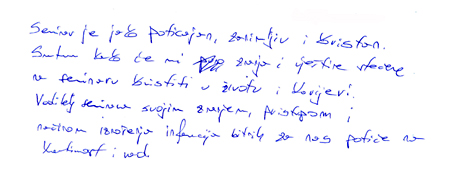 Seminar je jako poticajan, zanimljiv i koristan.
Smatram kako će mi znanja i vještine stečene
na seminaru koristiti u životu i karijeri.
Voditelj seminara svojim znanjem, pristupom i
načinom iznošenja informacija bitnih za nas potiče na
kreativnost i rad.